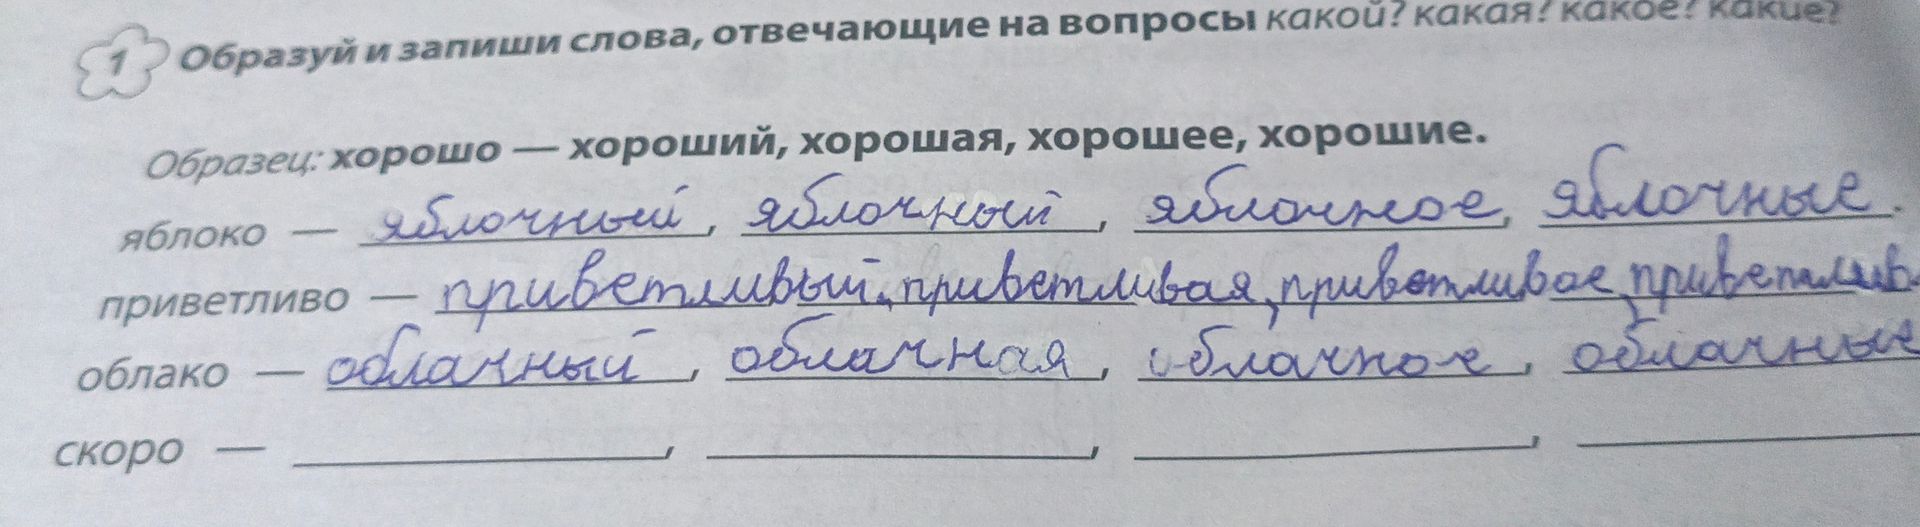 1 Образуй и запиши слова, отвечающие на вопросы какой? какая? какое? какие?
Образец: хорошо — хороший, хорошая, хорошее, хорошие.
яблоко — яблочный, яблочный, яблочное, яблочные.
приветливо — приветливый, приветливая, приветливое, приветлив
облако — облачный, облачная, облачное, облачные
скоро — , , ,